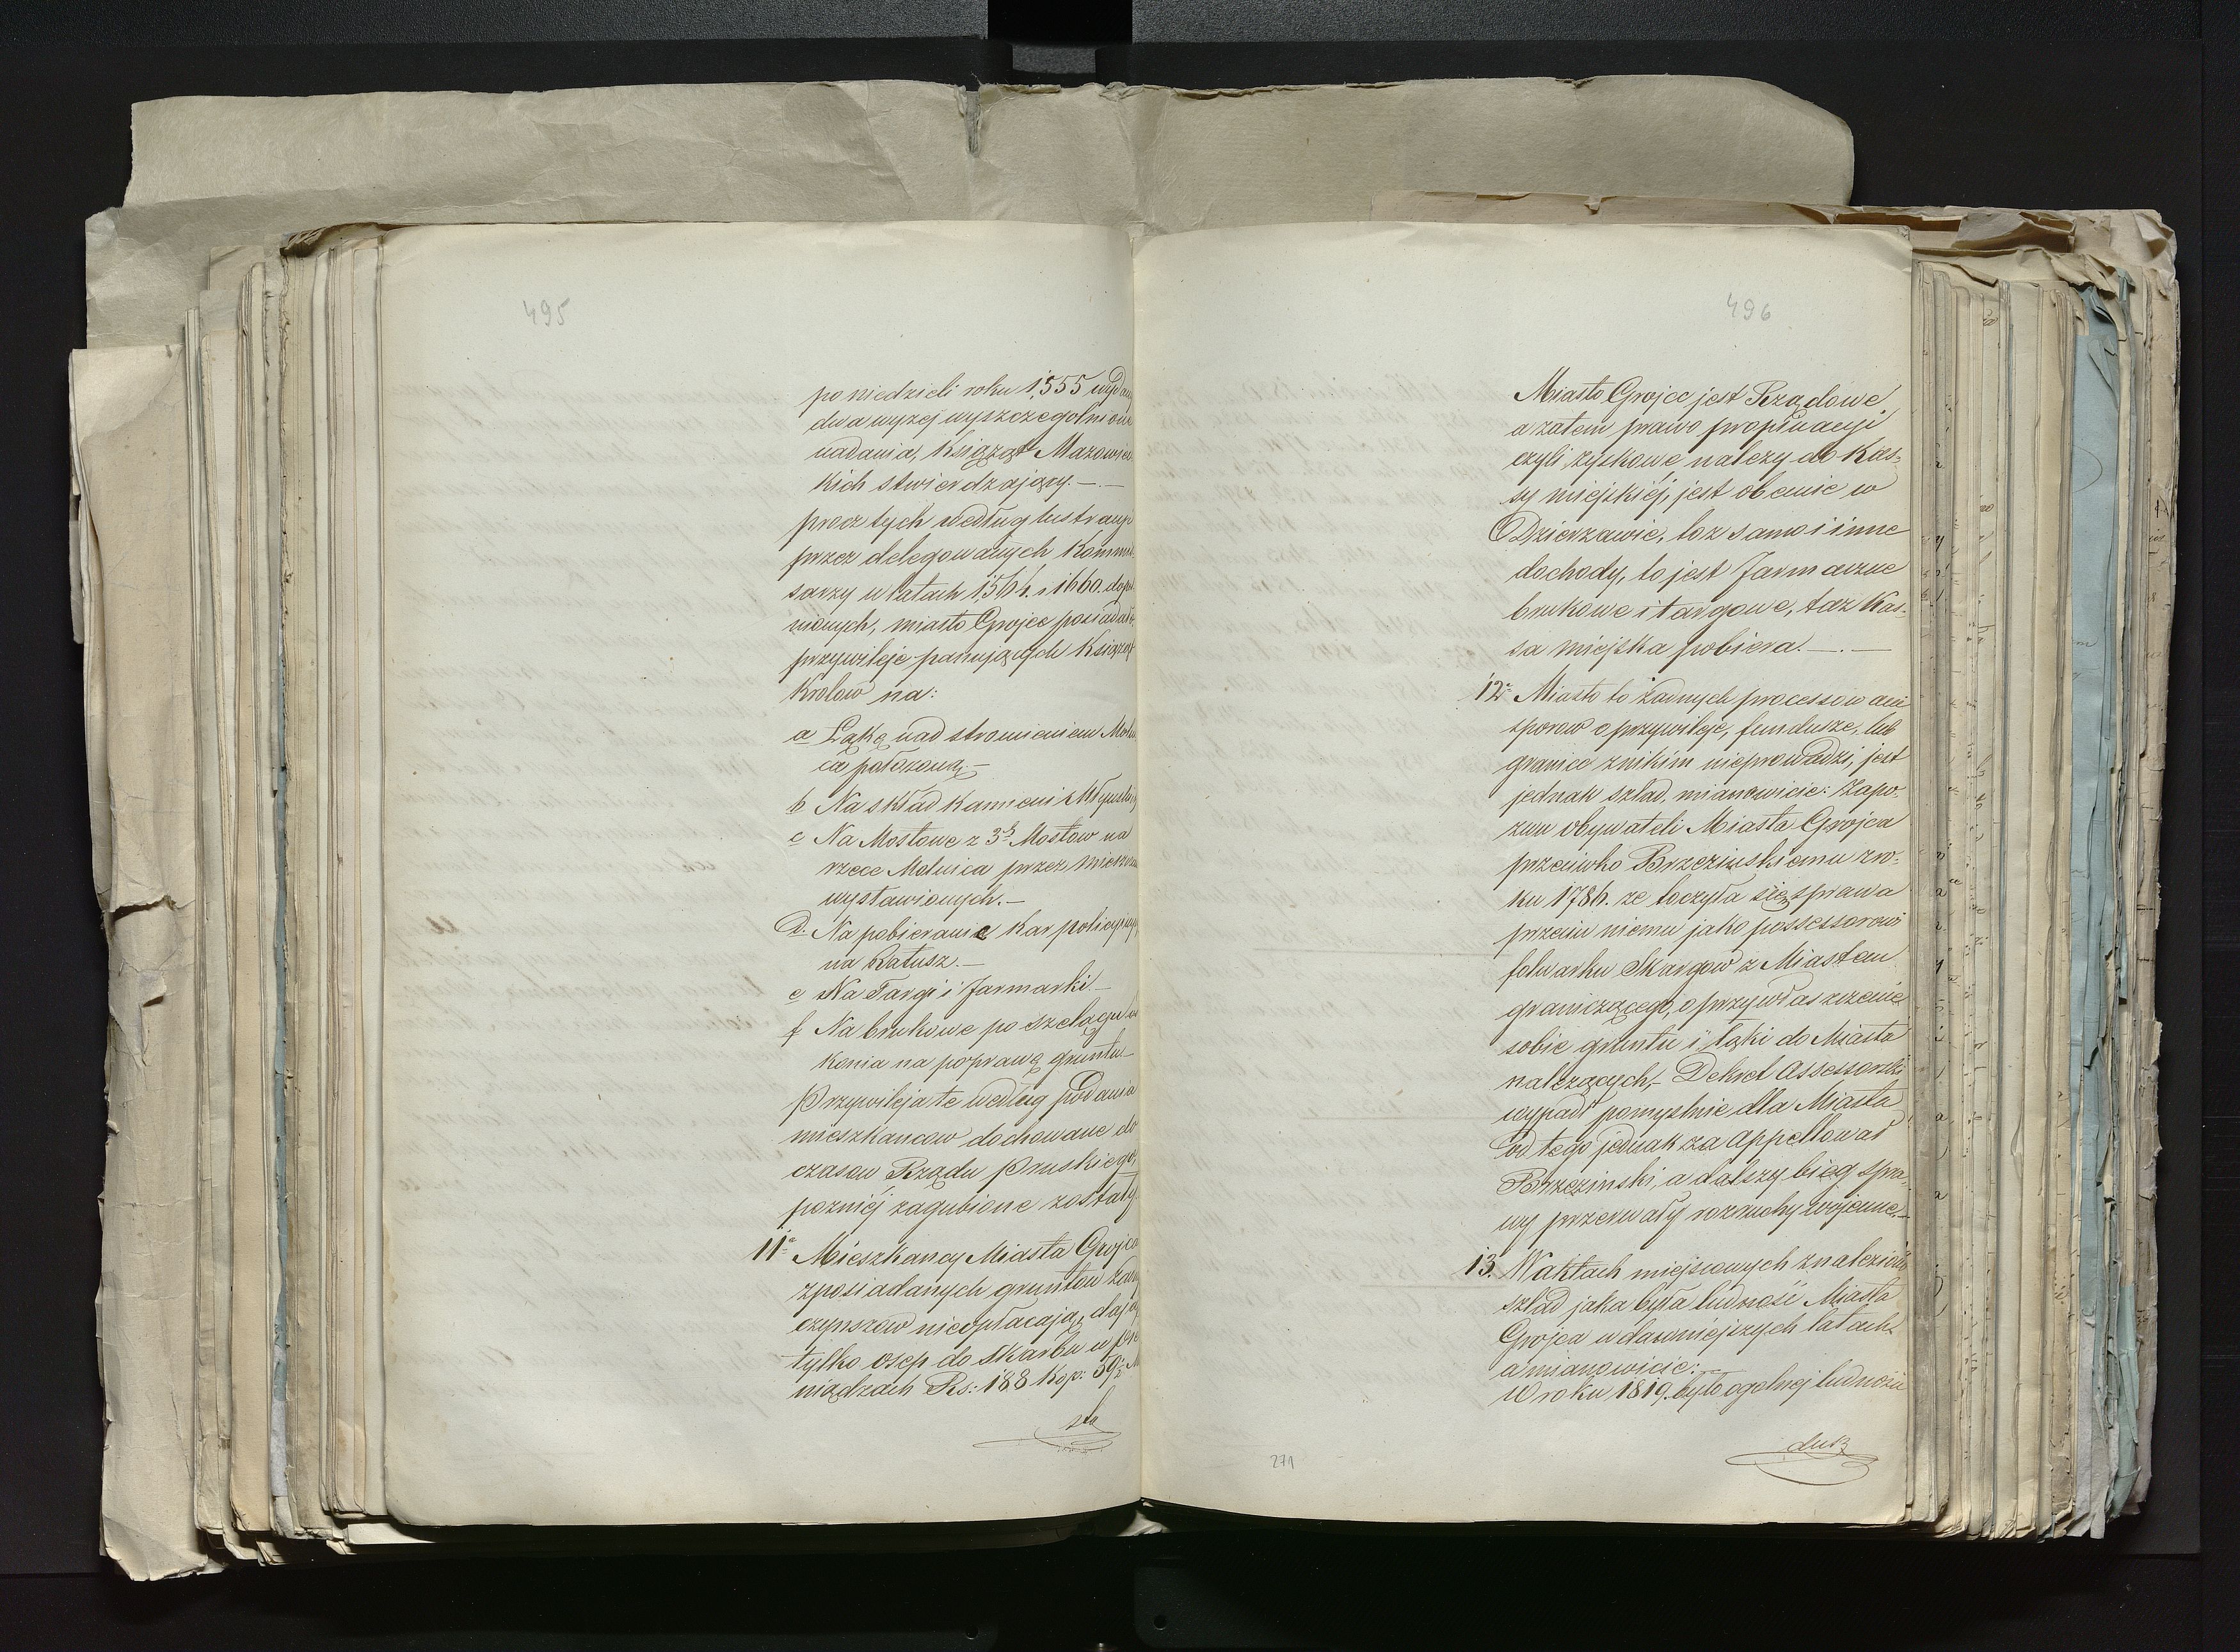 495
po niedzieli roku 1,555 wydany
dwa wyzej wyszczegolnione
nadania, Książąt Mazowiec
kich stwierdzający. — . —
procz tych według lustracyi
przez delegowanych Kommis
sarzy w latach 1,564. i 1660. dopeł
nionych, miasto Grojec posiadało
przywileje panujących Książąt
Krolow na:
a Łąkę nad strumieniem Moln
ca położoną. —
b Na skład kamieni Młynskich
c Na Mostowe z 3ch Mostow na
rzece Molnica przez mieszcz
wystawionych. —
D. Na pobieranie kar policyjnych
na Ratusz. —
e Na Targi i Jarmarki. —
f Na brukowe po szelągu od
konia na poprawę gruntu —
Przywileja te według podania
mieszkancow dochowane do
czasow Rządu Pruskiego,
pozniéj zagubione zostały.
11a Mieszkancy Miasta Grojca
zposiadanych gruntow żadn
czynszow nieopłacają, dają
tylko osep do Skarbu w pie
niądzach Rs: 188 Kop: 59½ M
sta
496
Miasto Grojec jest Rządowe,
a zatem prawo propinacyi
czyli zyskowe należy do Kas-
sy miejskiéj, jest obecnie w
Dzierzawie, toz samo i inne
dochody, to jest Jarmarczne
brukowe i targowe, taz Kas-
sa miejska pobiera. — . —
12a Miasto to żadnych processow ani
sporow o przywileje, fundusze, lub
granice znikim nieprowadzi, jest
jednak szlad, mianowicie: Zapo-
zwu obywateli Miasta Grojca
przeciwko Brzezinskiemu zro-
ku 1786. ze toczyła się sprawa
przeciw niemu jako possessorowi
folwarku Skargow z Miastem
graniczącego, o przywłaszczenie
sobie gruntu i łąki do Miasta
należących, — Dekret Assessorski
wypadł pomyslnie dla Miasta
od tego jednak za appellował
Brzezinski, a dalszy bieg spra-
wy przerwały rozruchy wojenne. —
13. W aktach miejscowych znaleziono
szlad jaka była ludność Miasta
Grojca w dawniejszych latach
a mianowicie: —
W roku 1819. było ogolnej ludności
dusz
271